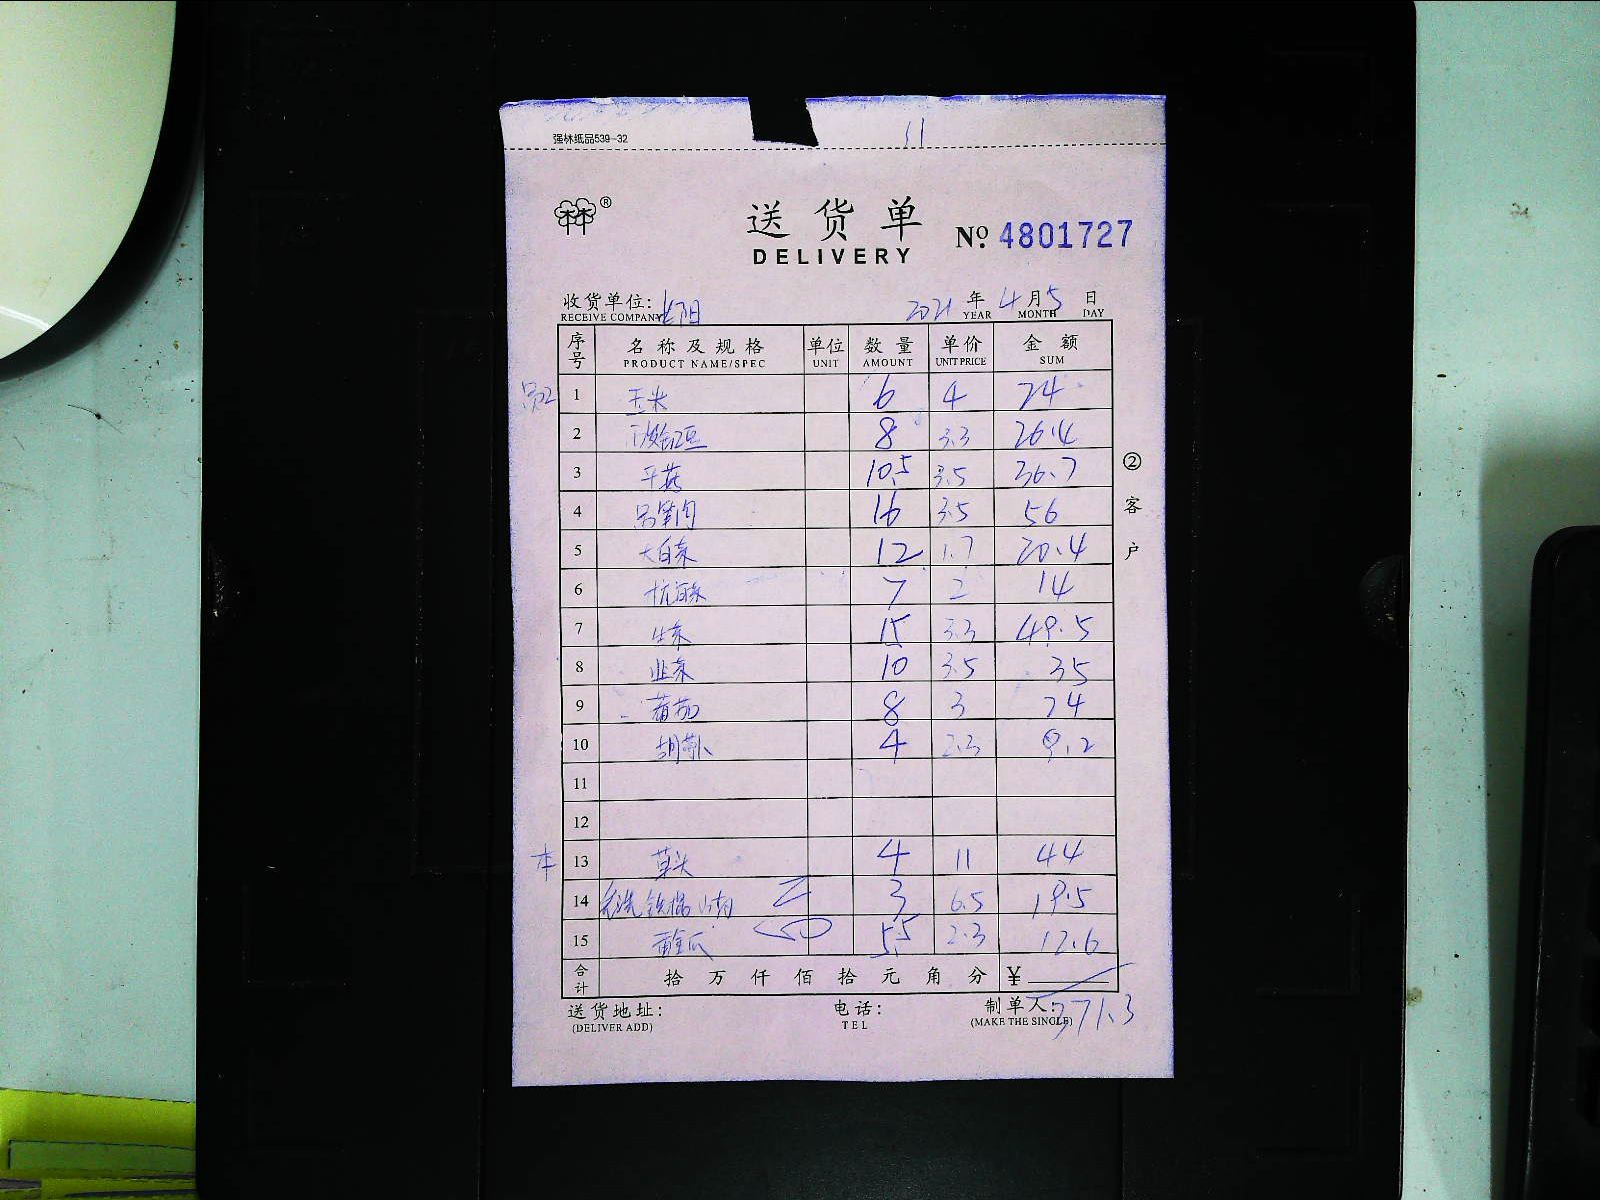 强林纸品539-32
11
林®
送货单
DELIVERY
№ 4801727
收货单位: 2021 年 4 月 5 日
RECEIVE COMPANY YEAR MONTH DAY
序号 名称及规格 单位 数量 单价 金额
PRODUCT NAME/SPEC UNIT AMOUNT UNIT PRICE SUM
1 玉米 6 4 24
2 8 3.3 26.4
3 平菇 10.5 3.5 36.7
4 16 3.5 56
5 大白菜 12 1.7 20.4
6 杭白菜 7 2 14
7 生菜 15 3.3 49.5
8 韭菜 10 3.5 35
9 番茄 8 3 24
10 胡萝卜 4 2.3 9.2
11
12
本 13 草头 4 11 44
14 铁棍山药 3 6.5 19.5
15 黄金瓜 5.5 2.3 12.6
合计 拾 万 仟 佰 拾 元 角 分 ¥
371.3
送货地址: 电话: 制单人:
(DELIVER ADD) TEL (MAKE THE SINGLE)
②客户